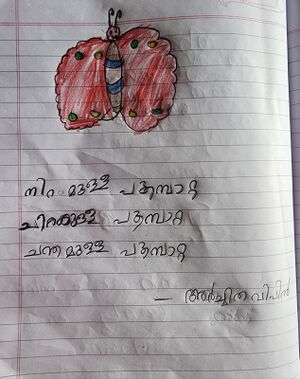 നിറമുള്ള പൂമ്പാറ്റ
ചിറകുള്ള പൂമ്പാറ്റ
ചന്തമുള്ള പൂമ്പാറ്റ
- അർച്ചിത വിപിൻ